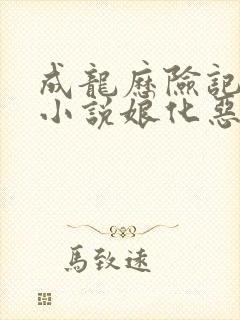 成龍歷險記
小說娘化惡
馬致遠